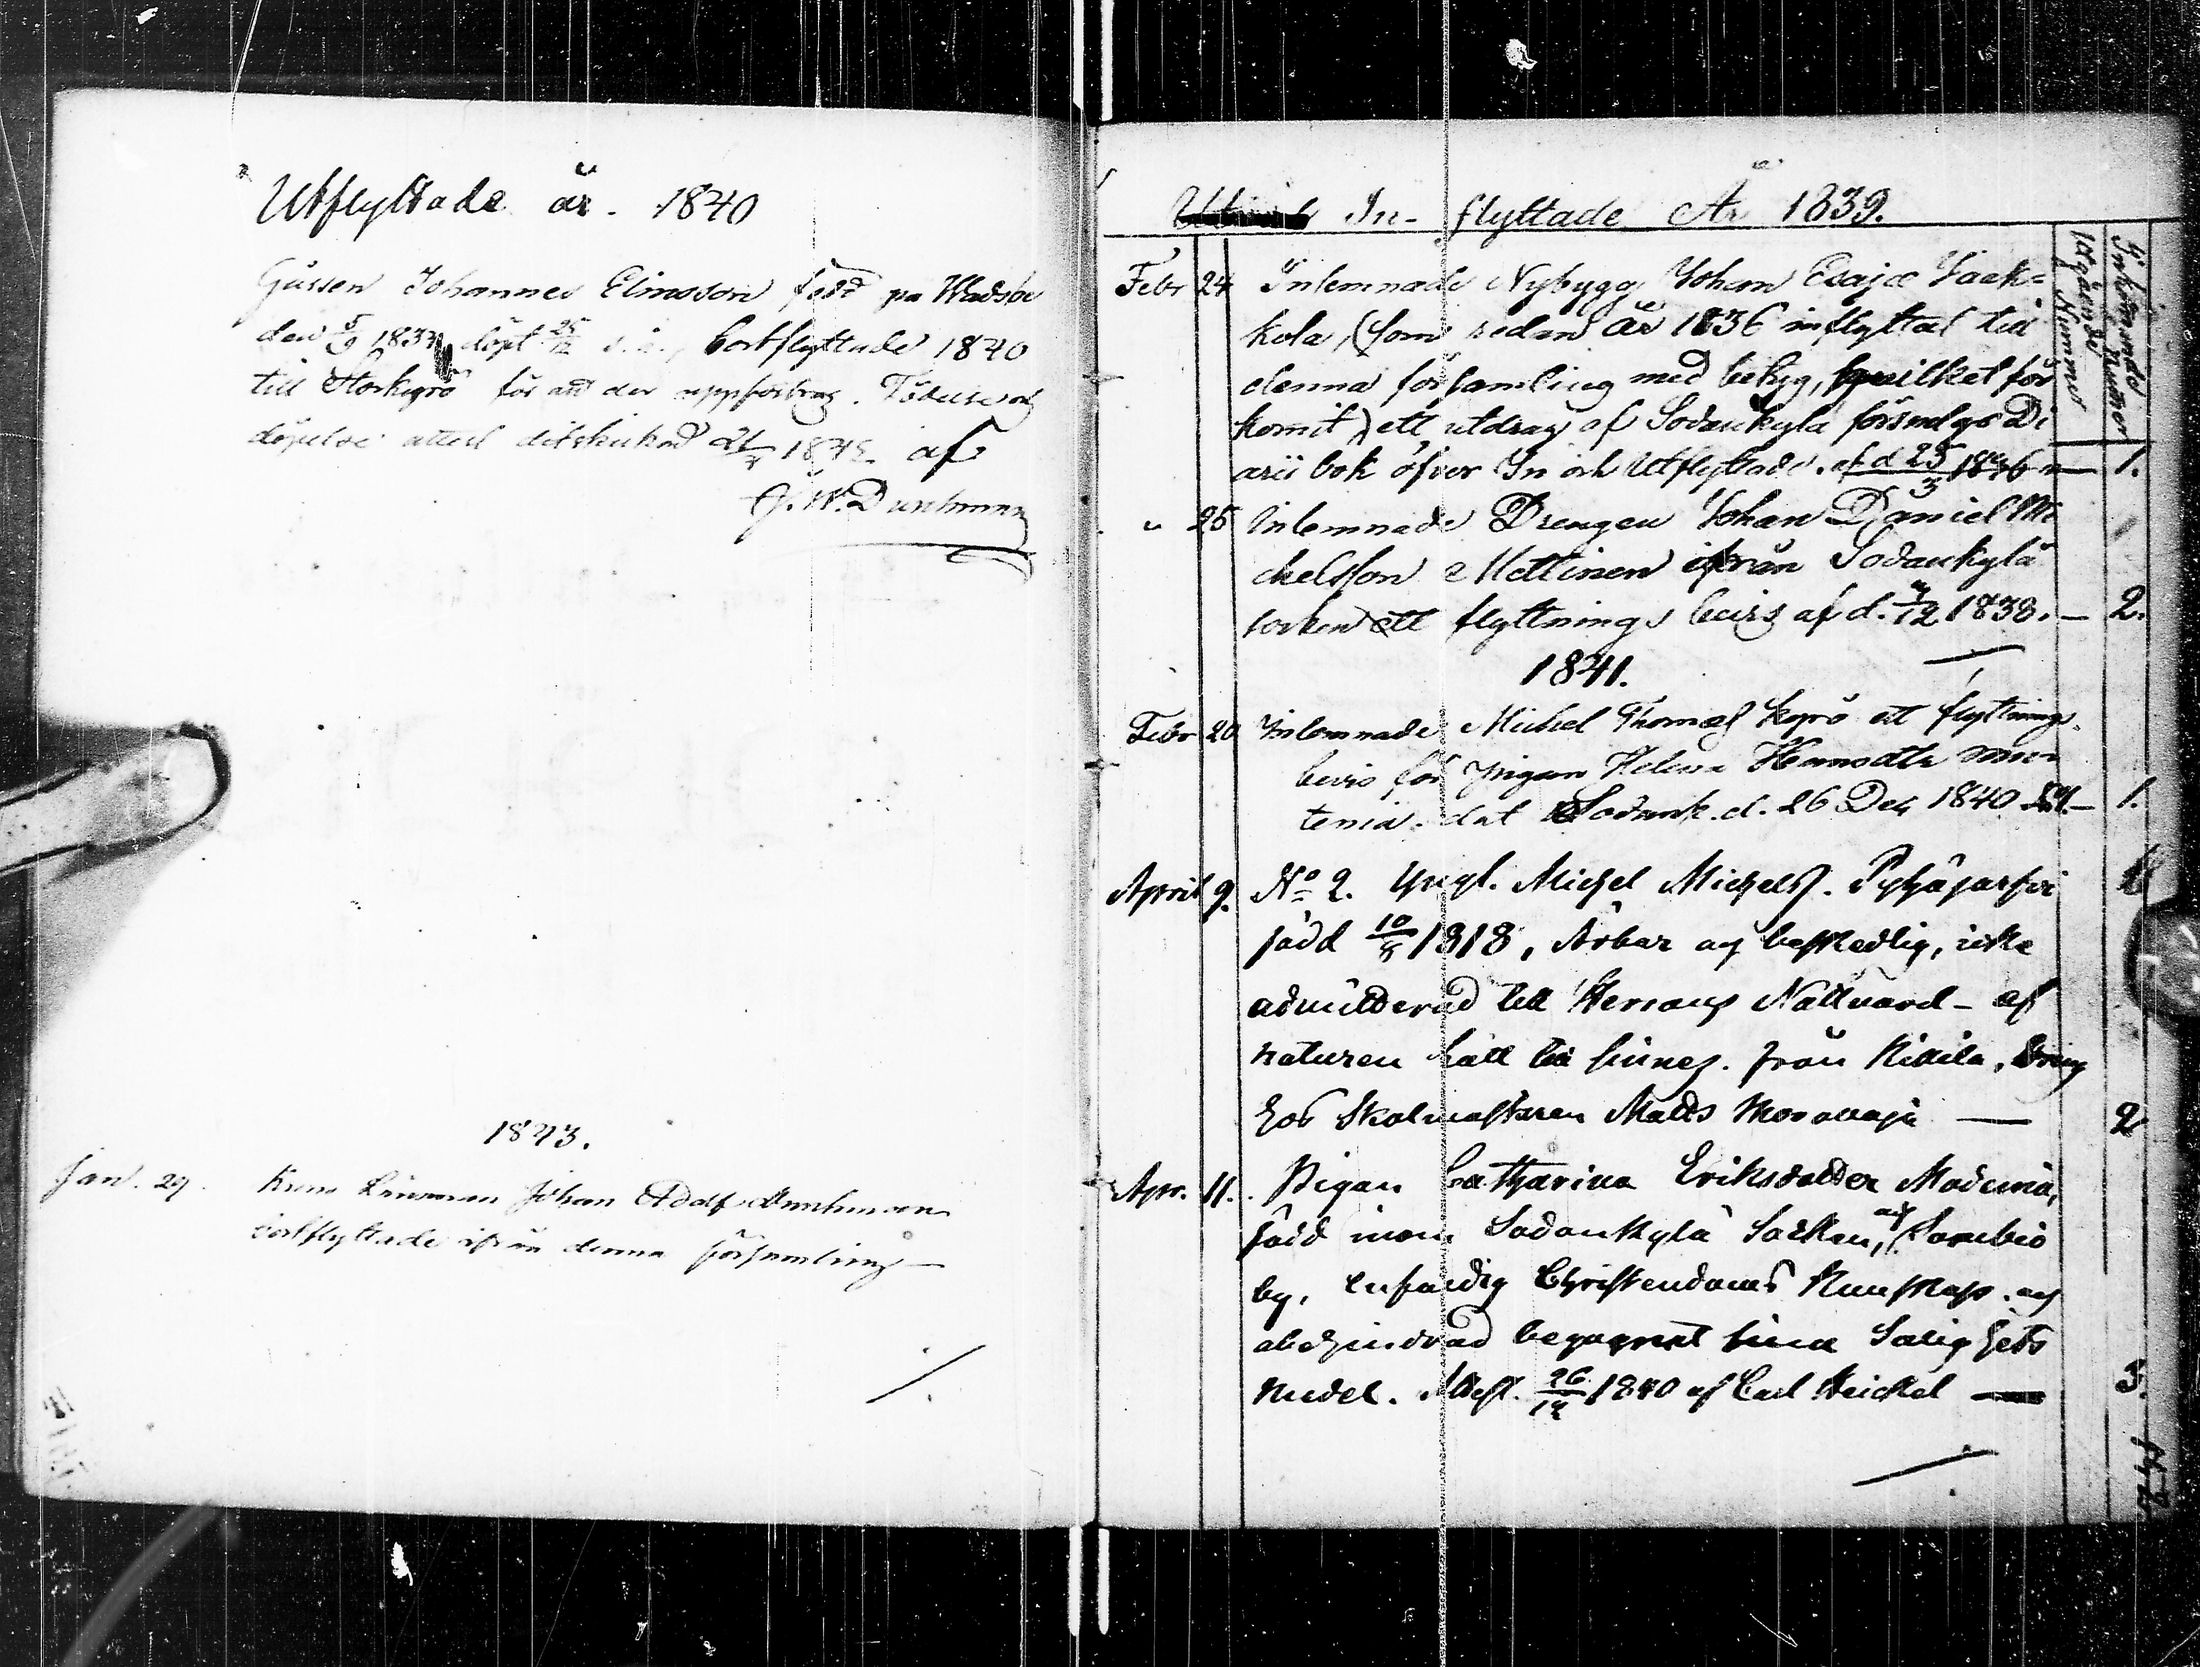 Utflyttade år. 1840
Gåssen Johannes Elinsson född på Wadsöe
den 5/9 1837 döpt 25/12 s. å., bortflyttade 1840
till Storkyrö för att der uppfostras. Födelse och
döpelse attest ditskickad 21/4 af
J. W. Durchman
1843.
Jan. 29. Krono Länsman Johan Adolf Durchman
bortflyttade ifrån denna församling
In-flyttade År 1839.
Inkommande Nummer
Utgående Nummer
Febr 24 Inlemnade Nybygg Johan Esajæ Sack=
kola, (som redan år 1836 inflyttat till
denna församling med betyg, hvilket för
komit) ett utdrag af Sodankylä församlgs Di
arii bok öfver In och Utflyttade. af d 25/3 1836 — 1.
" 25 Inlemnade Drengen Johan Daniel Mi
chelsson Mettinen ifrån Sodankylä
socken ett flyttnings bevis af d. /12 1838. — 2.
1841.
Febr 20 Inlemnade Michel Thomas Kyrö ett flyttnings
bevis för pigan Helena Hansdtr
tenia. dat Sodank. d. 26 Dec 1840 — 1.
April 9. No 2. Yngl. Michel Michelss. Pyhäjärfvi
född 10/8 1818, Ärbar och beskedlig, icke
admitterad till Herrans Nattvard - af
naturen satt till sinnes. från Kittila, Dreng
hos Skolmästaren Matts Moravaja — 2
Apr. 11. Pigan Catharina Eriksdotter Madenia,
född inom Sodankylä Socken, och Sombio
by, enfaldig Christendoms Kunskap. och
obehindrad begagnat sina Salighets
medel. Attest. 26/12 1840 af Carl Heickel — 3.